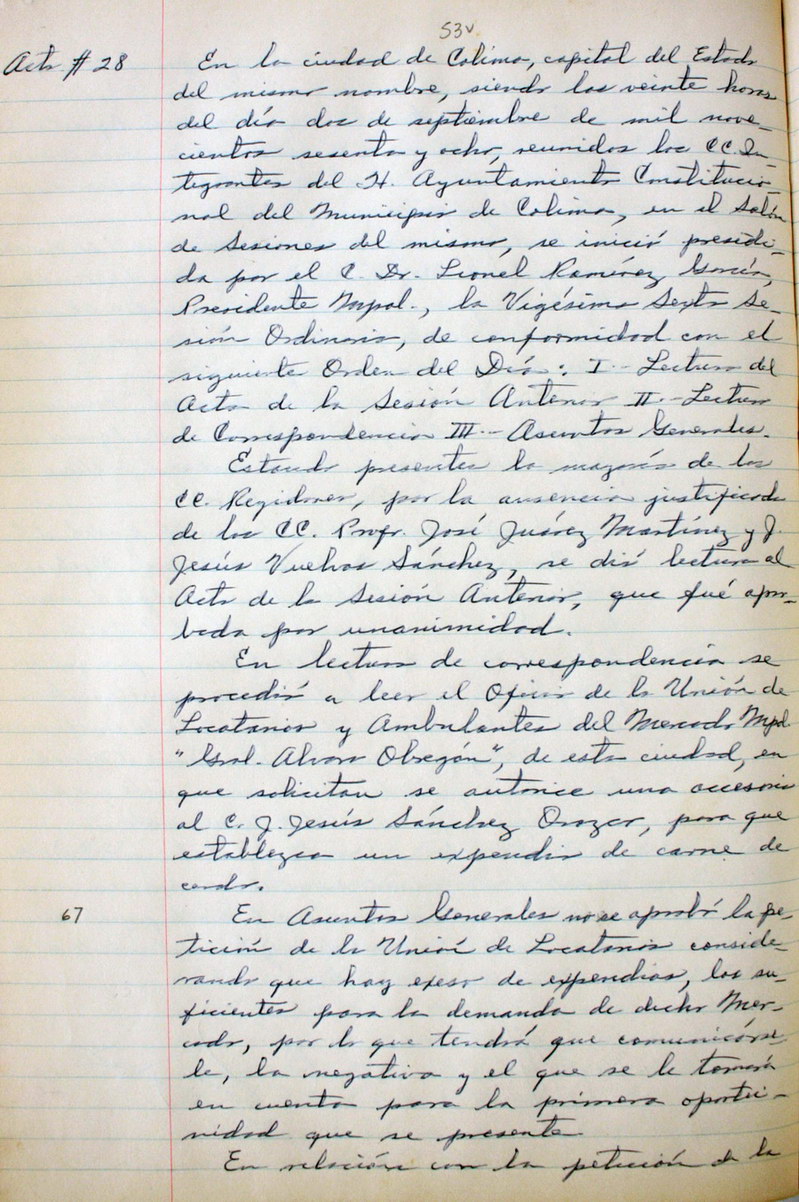 53v
Acta # 28
En la ciudad de Colima, capital del Estado
del mismo nombre, siendo las veinte horas
del día dos de septiembre de mil nove-
cientos sesenta y ocho, reunidos los CC. In-
tegrantes del H. Ayuntamiento Constitucio-
nal del Municipio de Colima, en el Salón
de Sesiones del mismo, se inició presidi-
da por el C. Dr. Lionel Ramírez García,
Presidente Mpal., la Vigésima Sexta Se-
sión Ordinaria, de conformidad con el
siguiente Orden del Día: I.- Lectura del
Acta de la Sesión Anterior II.- Lectura
de Correspondencia III.- Asuntos Generales.
Estando presentes la mayoría de los
CC. Regidores, por la ausencia justificada
de los CC. Profr. José Juárez Martínez y J.
Jesús Vuelvas Sánchez, se dió lectura al
Acta de la Sesión Anterior, que fué apro-
bada por unanimidad.
En lectura de correspondencia se
procedió a leer el Oficio de la Unión de
Locatarios y Ambulantes del Mercado Mpal
"Gral. Alvaro Obregón", de esta ciudad, en
que solicitan se autorice una accesoria
al C. J. Jesús Sánchez Orozco, para que
establezca un expendio de carne de
cerdo.
67
En Asuntos Generales no se aprobó la pe-
tición de la Unión de Locatarios conside-
rando que hay exeso de expendios, los su-
ficientes para la demanda de dicho Mer-
cado, por lo que tendrá que comunicárse-
le, la negativa y el que se le tomará
en cuenta para la primera oportu-
nidad que se presente.
En relación con la petición de la